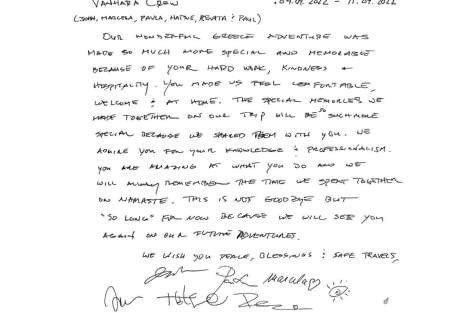 VANHARA CREW 04.09.2022 - 11.09.2022
(JOHN, MARCELA, PAVLA, HATSUE, RENATA & PAUL)
OUR WONDERFUL GREECE ADVENTURE WAS
MADE SO MUCH MORE SPECIAL AND MEMORABLE
BECAUSE OF YOUR HARD WORK, KINDNESS +
HOSPITALITY. YOU MADE US FEEL COMFORTABLE,
WELCOME & AT HOME. THE SPECIAL MEMORIES WE
MADE TOGETHER ON OUR TRIP WILL BE SO SUCH MORE
SPECIAL BECAUSE WE SHARED THEM WITH YOU. WE
ADMIRE YOU FOR YOUR KNOWLEDGE & PROFESSIONALISM.
YOU ARE AMAZING AT WHAT YOU DO AND WE
WILL ALWAY REMEMBER THE TIME WE SPENT TOGETHER
ON NAMASTE. THIS IS NOT GOODBYE BUT
"SO LONG" FOR NOW BECAUSE WE WILL SEE YOU
AGAIN ON OUR FUTURE ADVENTURES.
WE WISH YOU PEACE, BLESSINGS & SAFE TRAVELS,